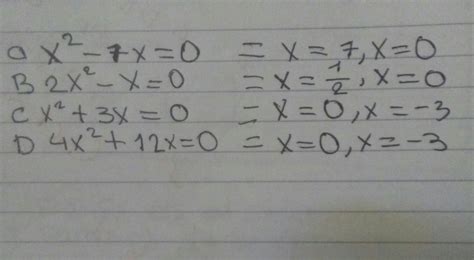 a x² - 7x = 0 = x = 7, x = 0
B 2x² - x = 0 = x = 1/2, x = 0
C x² + 3x = 0 = x = 0, x = -3
D 4x² + 12x = 0 = x = 0, x = -3